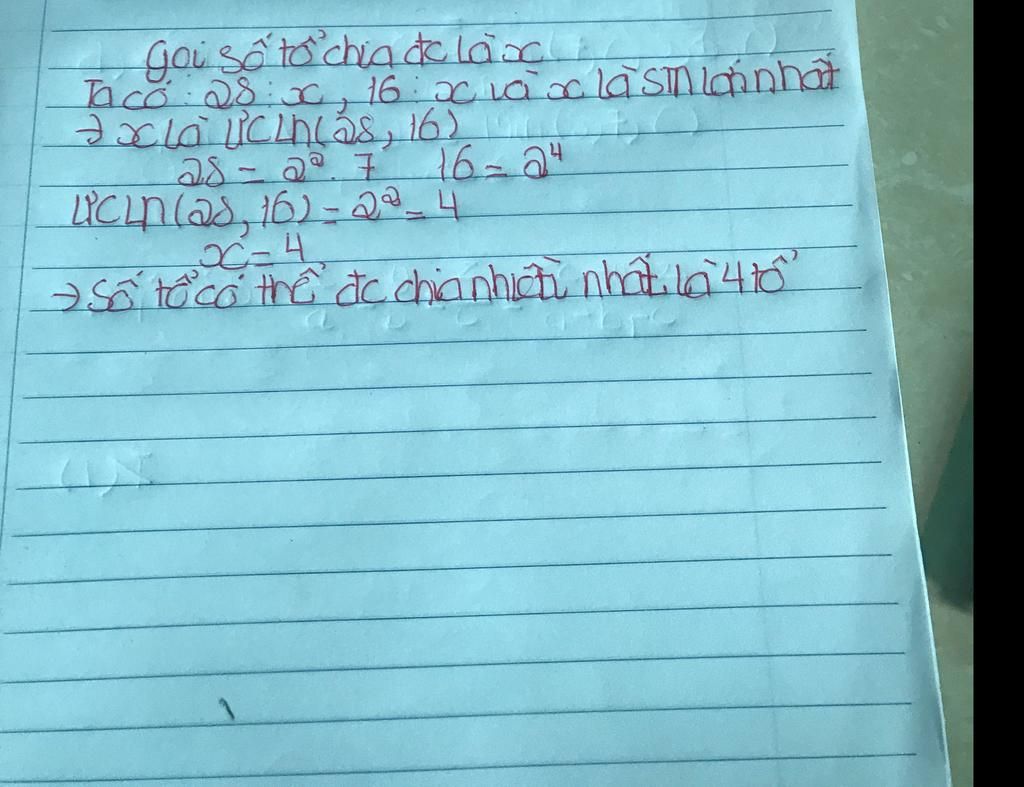 Gọi số tổ chia đc là x
Ta có : 28 : x , 16 : x và x là STN lớn nhất
→ x là ƯCLN(28, 16)
28 = 2². 7 16 = 2⁴
ƯCLN(28, 16) = 2² = 4
x = 4
→ Số tổ có thể đc chia nhiều nhất là 4 tổ